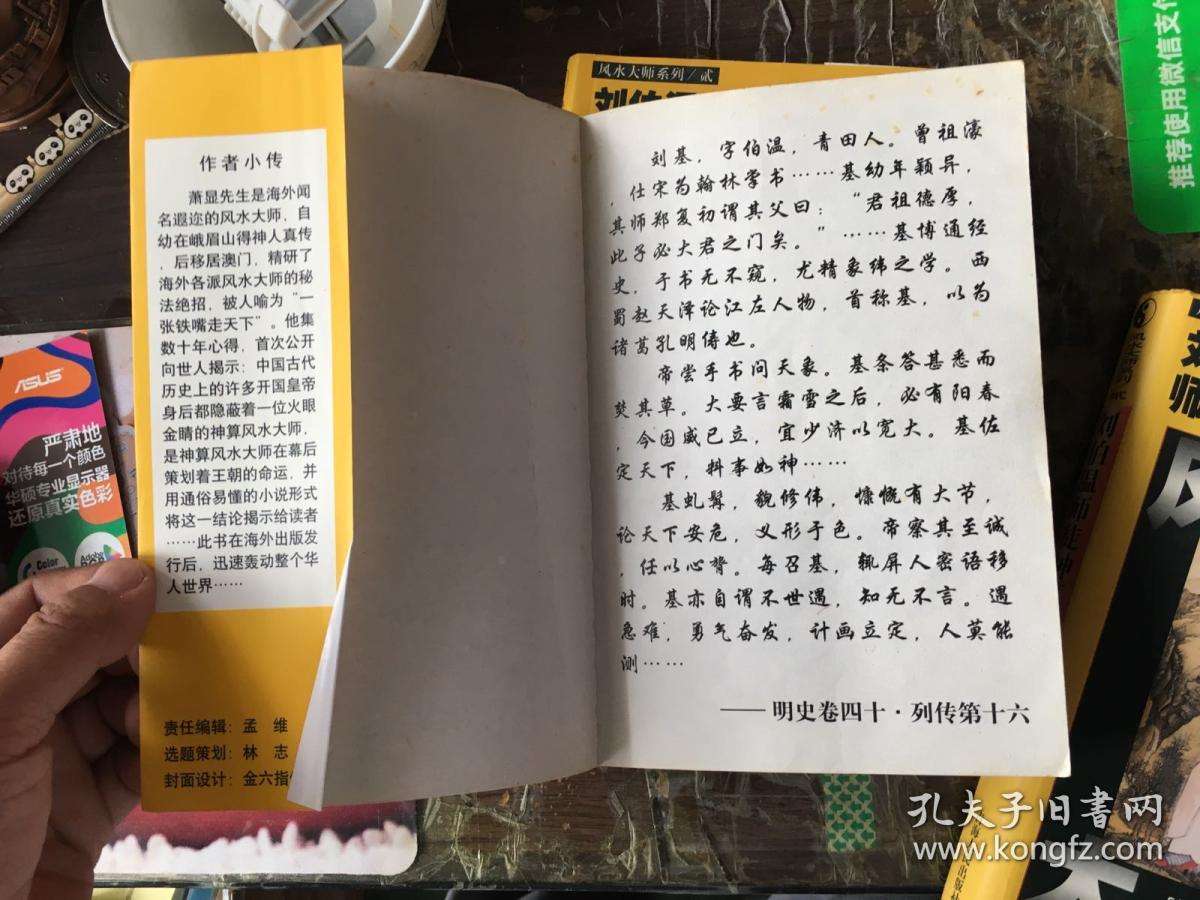 作者小传
萧显先生是海外闻
名遐迩的风水大师，自
幼在峨眉山得神人真传
，后移居澳门，精研了
海外各派风水大师的秘
法绝招，被人喻为“一
张铁嘴走天下”。他集
数十年心得，首次公开
向世人揭示：中国古代
历史上的许多开国皇帝
身后都隐蔽着一位火眼
金睛的神算风水大师，
是神算风水大师在幕后
策划着王朝的命运，并
用通俗易懂的小说形式
将这一结论揭示给读者
……此书在海外出版发
行后，迅速轰动整个华
人世界……
责任编辑：孟 维
选题策划：林 志
封面设计：金六指
风水大师系列/贰
刘基，字伯温，青田人。曾祖濠
，仕宋为翰林掌书……基幼年颖异，
其师郑复初谓其父曰：“君祖德厚，
此子必大君之门矣。”……基博通经
史，于书无不窥，尤精象纬之学。西
蜀赵天泽论江左人物，首称基，以为
诸葛孔明俦也。
帝尝手书问天象。基条答甚悉而
焚其草。大要言霜雪之后，必有阳春
，今国威已立，宜少济以宽大。基佐
定天下，料事如神……
基虬髯，貌修伟，慷慨有大节，
论天下安危，义形于色。帝察其至诚
，任以心膂。每召基，辄屏人密语移
时。基亦自谓不世遇，知无不言。遇
急难，勇气奋发，计画立定，人莫能
测……
——明史卷四十·列传第十六
ASUS
严肃地
对待每一个颜色
华硕专业显示器
还原真实色彩
Color
Adobe
推荐使用微信支付
孔夫子旧书网
www.kongfz.com